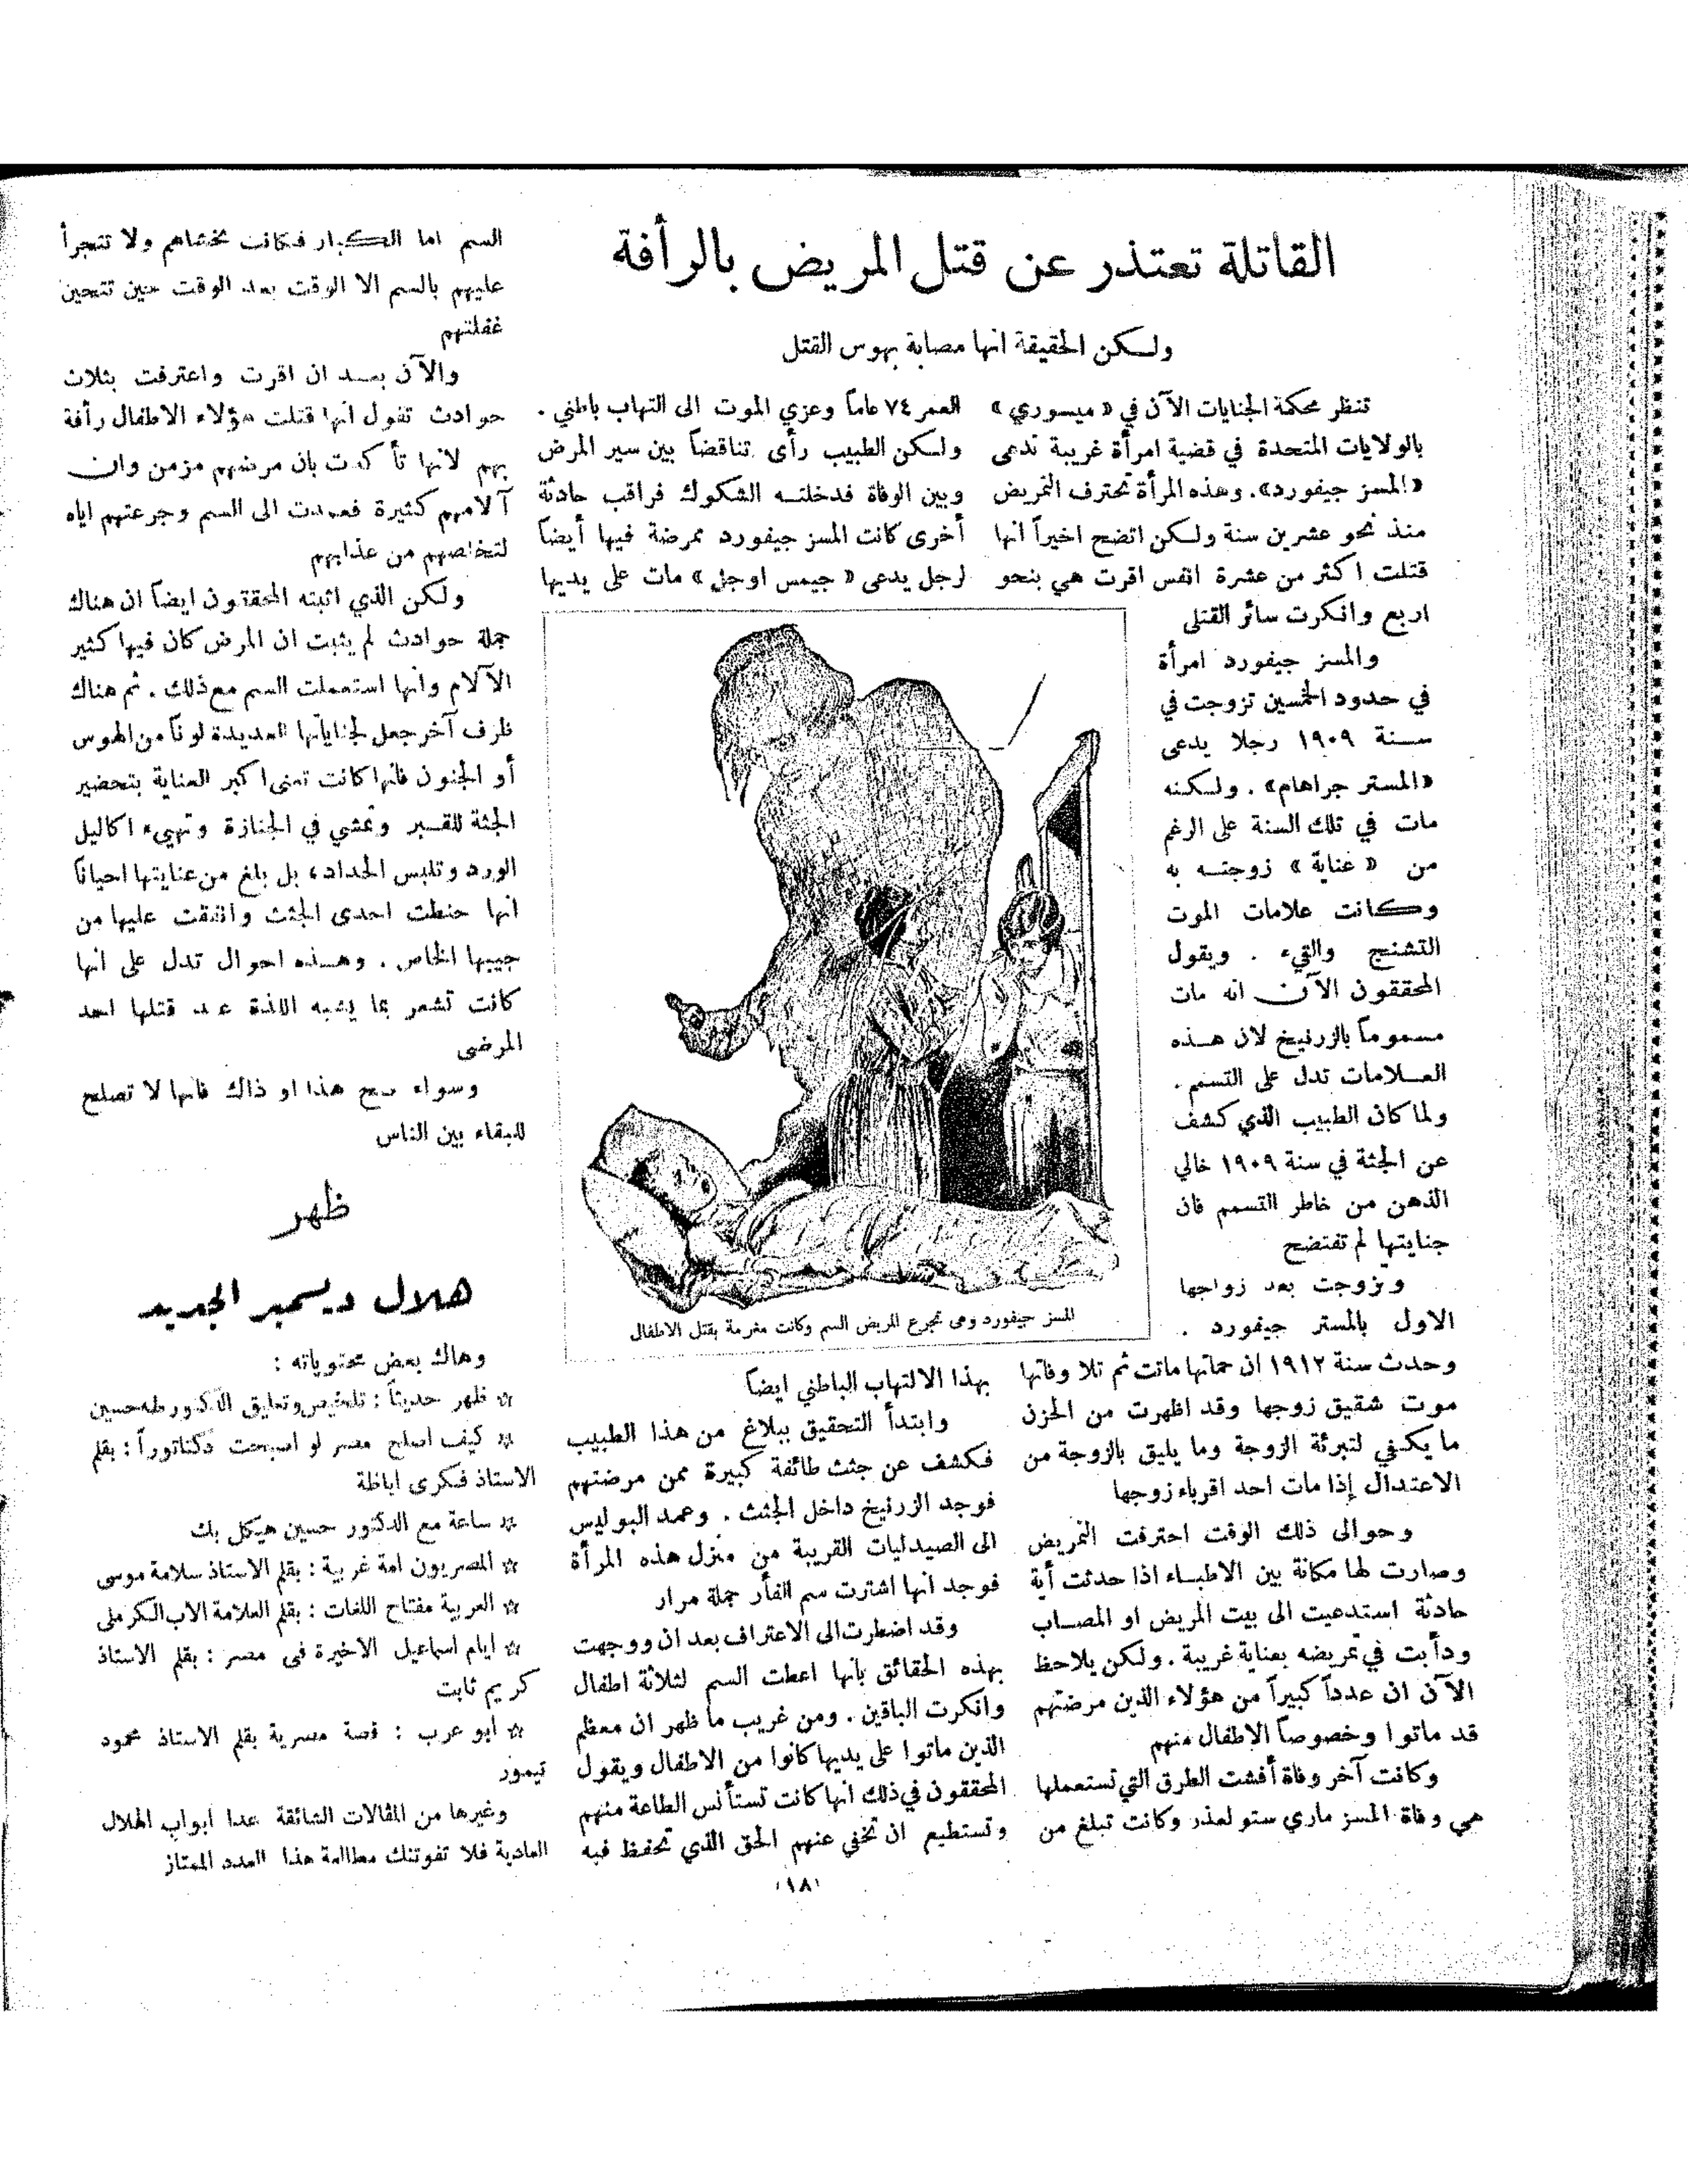 القاتلة تعتذر عن قتل المريض بالرأفة
ولكن الحقيقة انها مصابة بهوس القتل
تنظر محكمة الجنايات الآن في « ميسوري »
بالولايات المتحدة في قضية امرأة غريبة تدعى
«المسز جيفورد». وهذه المرأة تحترف التمريض
منذ نحو عشرين سنة ولكن اتضح اخيراً انها
قتلت اكثر من عشرة انفس اقرت هي بنحو
اربع وانكرت سائر القتلى
والمسز جيفورد امرأة
في حدود الخمسين تزوجت في
سنة ١٩٠٩ رجلا يدعى
«المستر جراهام» . ولكنه
مات في تلك السنة على الرغم
من « عناية » زوجته به
وكانت علامات الموت
التشنج والقيء . ويقول
المحققون الآن انه مات
مسموماً بالزرنيخ لان هذه
العلامات تدل على التسم .
ولما كان الطبيب الذي كشف
عن الجثة في سنة ١٩٠٩ خالي
الذهن من خاطر التسمم فان
جنايتها لم تفتضح
وتزوجت بعد زواجها
الاول بالمستر جيفورد .
وحدث سنة ١٩١٢ ان حماتها ماتت ثم تلا وفاتها
موت شقيق زوجها وقد اظهرت من الحزن
ما يكفي لتبرئة الزوجة وما يليق بالزوجة من
الاعتدال إذا مات احد اقرباء زوجها
وحوالى ذلك الوقت احترفت التمريض
وصارت لها مكانة بين الاطباء اذا حدثت أية
حادثة استدعيت الى بيت المريض او المصاب
ودأبت في تمريضه بعناية غريبة . ولكن يلاحظ
الآن ان عدداً كبيراً من هؤلاء الذين مرضتهم
قد ماتوا وخصوصاً الاطفال منهم
وكانت آخر وفاة أفشت الطرق التي تستعملها
هي وفاة المسز ماري ستولعذر وكانت تبلغ من
العمر ٧٤ عاماً وعزي الموت الى التهاب باطني .
ولكن الطبيب رأى تناقضاً بين سير المرض
وبين الوفاة فدخلته الشكوك فراقب حادثة
أخرى كانت المسز جيفورد ممرضة فيها أيضاً
لرجل يدعى « جيمس اوجل » مات على يديها
المسز جيفورد وهى تجرع المريض السم وكانت مغرمة بقتل الاطفال
بهذا الالتهاب الباطني ايضاً
وابتدأ التحقيق ببلاغ من هذا الطبيب
فكشف عن جثث طائفة كبيرة ممن مرضتهم
فوجد الزرنيخ داخل الجثث . وعمد البوليس
الى الصيدليات القريبة من منزل هذه المرأة
فوجد انها اشترت سم الفأر جملة مرار
وقد اضطرت الى الاعتراف بعد ان ووجهت
بهذه الحقائق بأنها اعطت السم لثلاثة اطفال
وانكرت الباقين . ومن غريب ما ظهر ان معظم
الذين ماتوا على يديها كانوا من الاطفال ويقول
المحققون في ذلك انها كانت تستأنس الطاعة منهم
وتستطيع ان تخفي عنهم الحق الذي تحفظ فيه
السم اما الكبار فكانت تخشاهم ولا تتجرأ
عليهم بالسم الا الوقت بعد الوقت حين تتحين
غفلتهم
والآن بعد ان اقرت واعترفت بثلاث
حوادث تقول انها قتلت هؤلاء الاطفال رأفة
بهم لانها تأكدت بان مرضهم مزمن وان
آلامهم كثيرة فعمدت الى السم وجرعتهم اياه
لتخلصهم من عذابهم
ولكن الذي اثبته المحققون ايضاً ان هناك
جملة حوادث لم يثبت ان المرض كان فيها كثير
الآلام وانها استعملت السم مع ذلك . ثم هناك
ظرف آخر جعل لجناياتها العديدة لوناً من الهوس
أو الجنون فانها كانت تعنى اكبر العناية بتحضير
الجثة للقبر وتمشي في الجنازة وتهيء اكاليل
الورد وتلبس الحداد، بل بلغ من عنايتها احياناً
انها حنطت احدى الجثث وانفقت عليها من
جيبها الخاص . وهذه احوال تدل على انها
كانت تشعر بما يشبه اللذة عند قتلها احد
المرضى
وسواء صح هذا او ذاك فانها لا تصلح
للبقاء بين الناس
ظهر
هلال ديسمبر الجديد
وهاك بعض محتوياته :
☆ ظهر حديثاً : تلخيص وتعليق الدكتور طه حسين
☆ كيف اصلح مصر لو اصبحت دكتاتوراً : بقلم
الاستاذ فكرى اباظة
☆ ساعة مع الدكتور حسين هيكل بك
☆ المصريون امة غربية : بقلم الاستاذ سلامة موسى
☆ العربية مفتاح اللغات : بقلم العلامة الاب الكرملى
☆ ايام اسماعيل الاخيرة فى مصر : بقلم الاستاذ
كريم ثابت
☆ ابو عرب : قصة مصرية بقلم الاستاذ محمود
تيمور
وغيرها من المقالات الشائقة عدا ابواب الهلال
العادية فلا تفوتنك مطالعة هذا العدد الممتاز